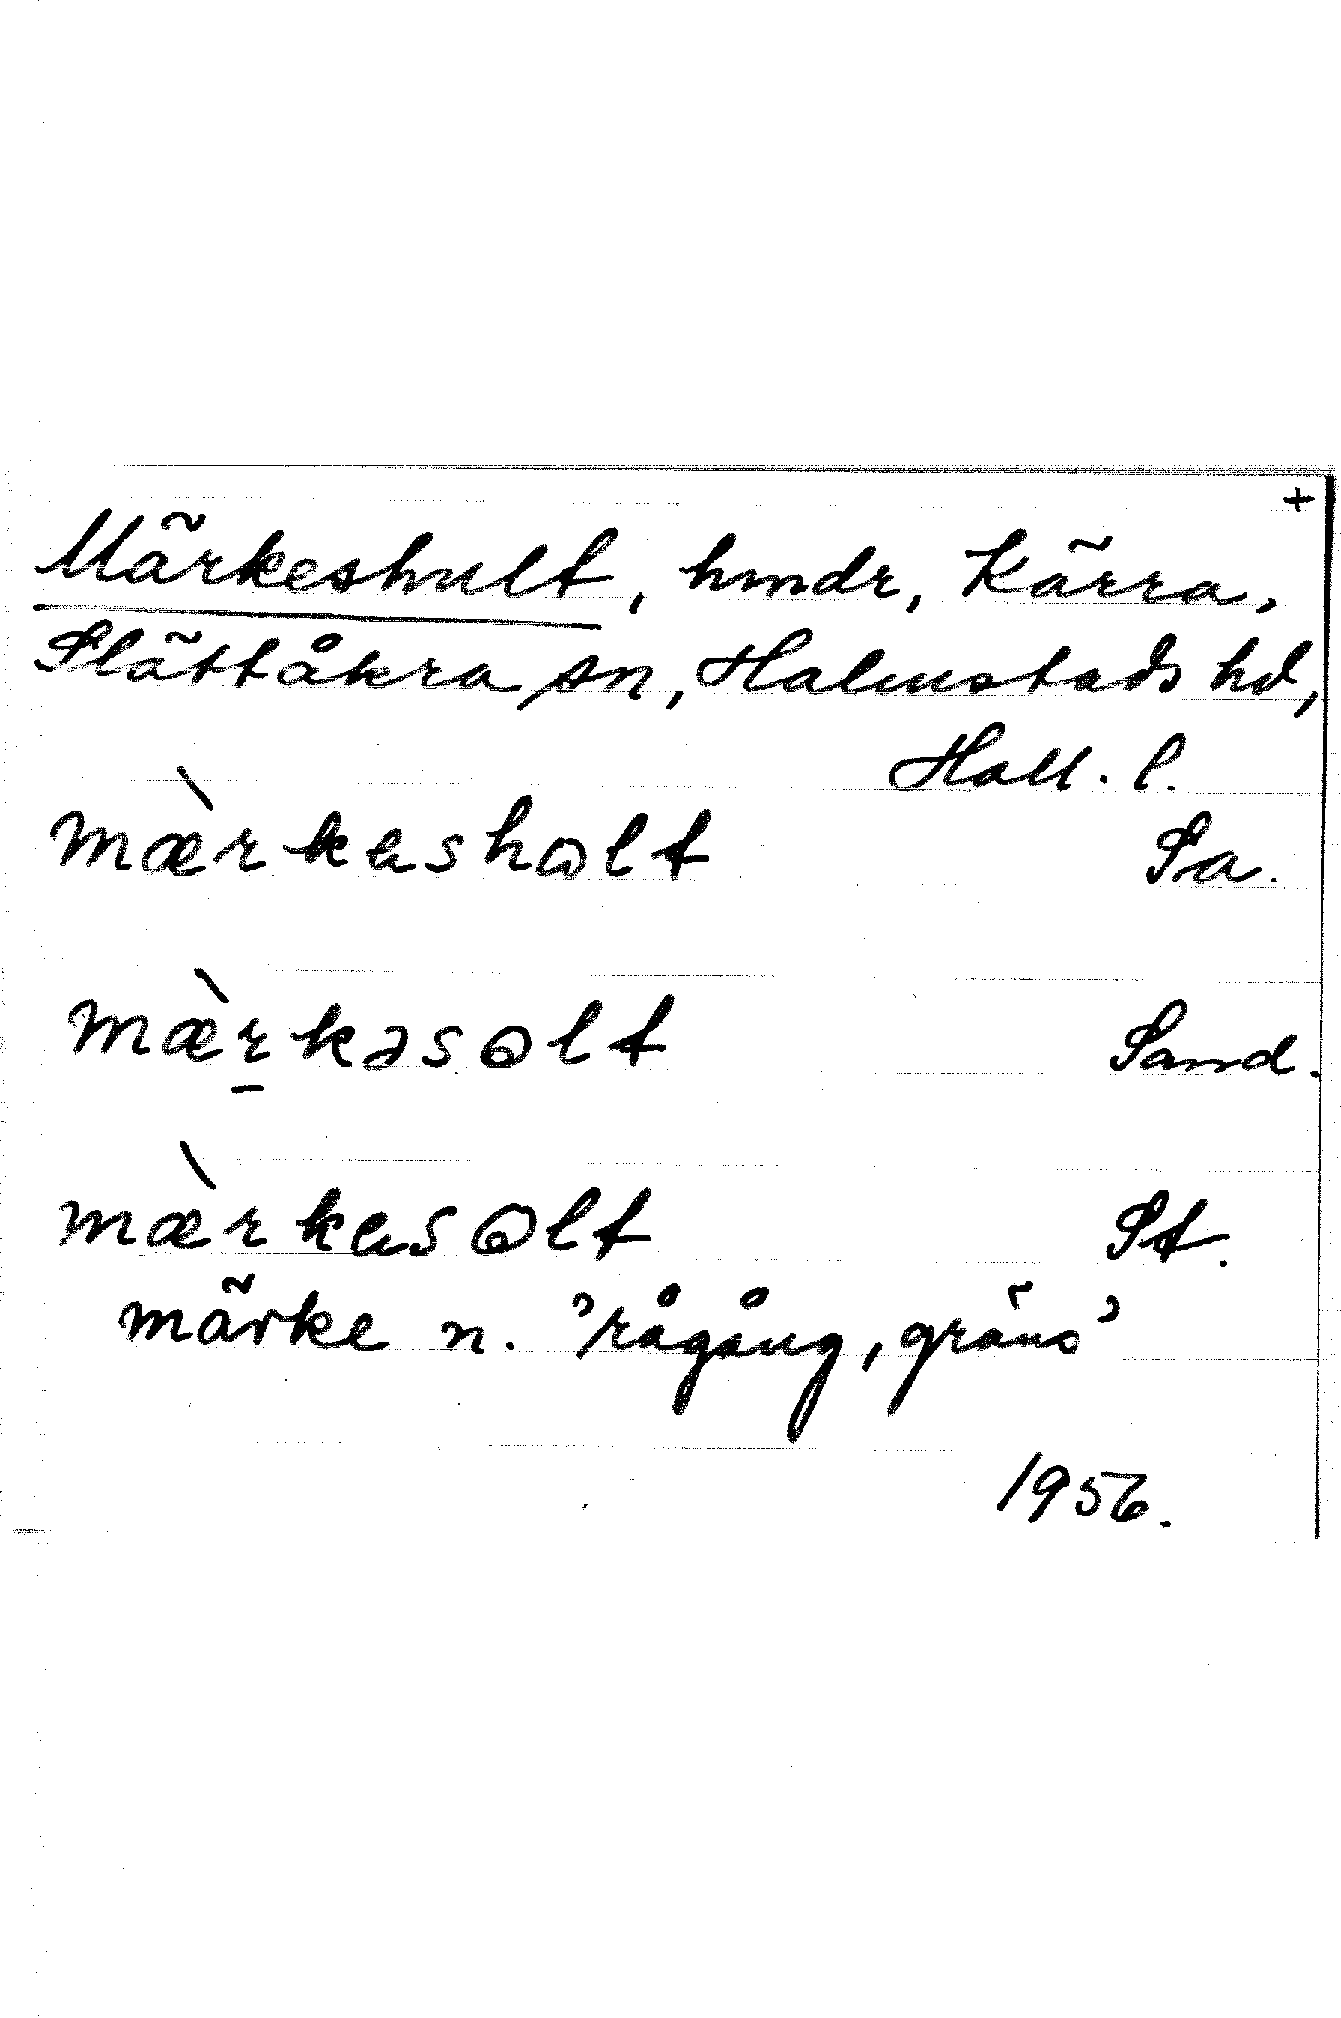 +
Märkeshult, hmdr, Kärra,
Slättåkra sn, Halmstads hd,
Hall. l.
mæ̀rkesholt Sa.
mæ̀r̠kəsolt Sand.
mæ̀rkesolt St.
märke n. 'rågång, gräns'
1956.